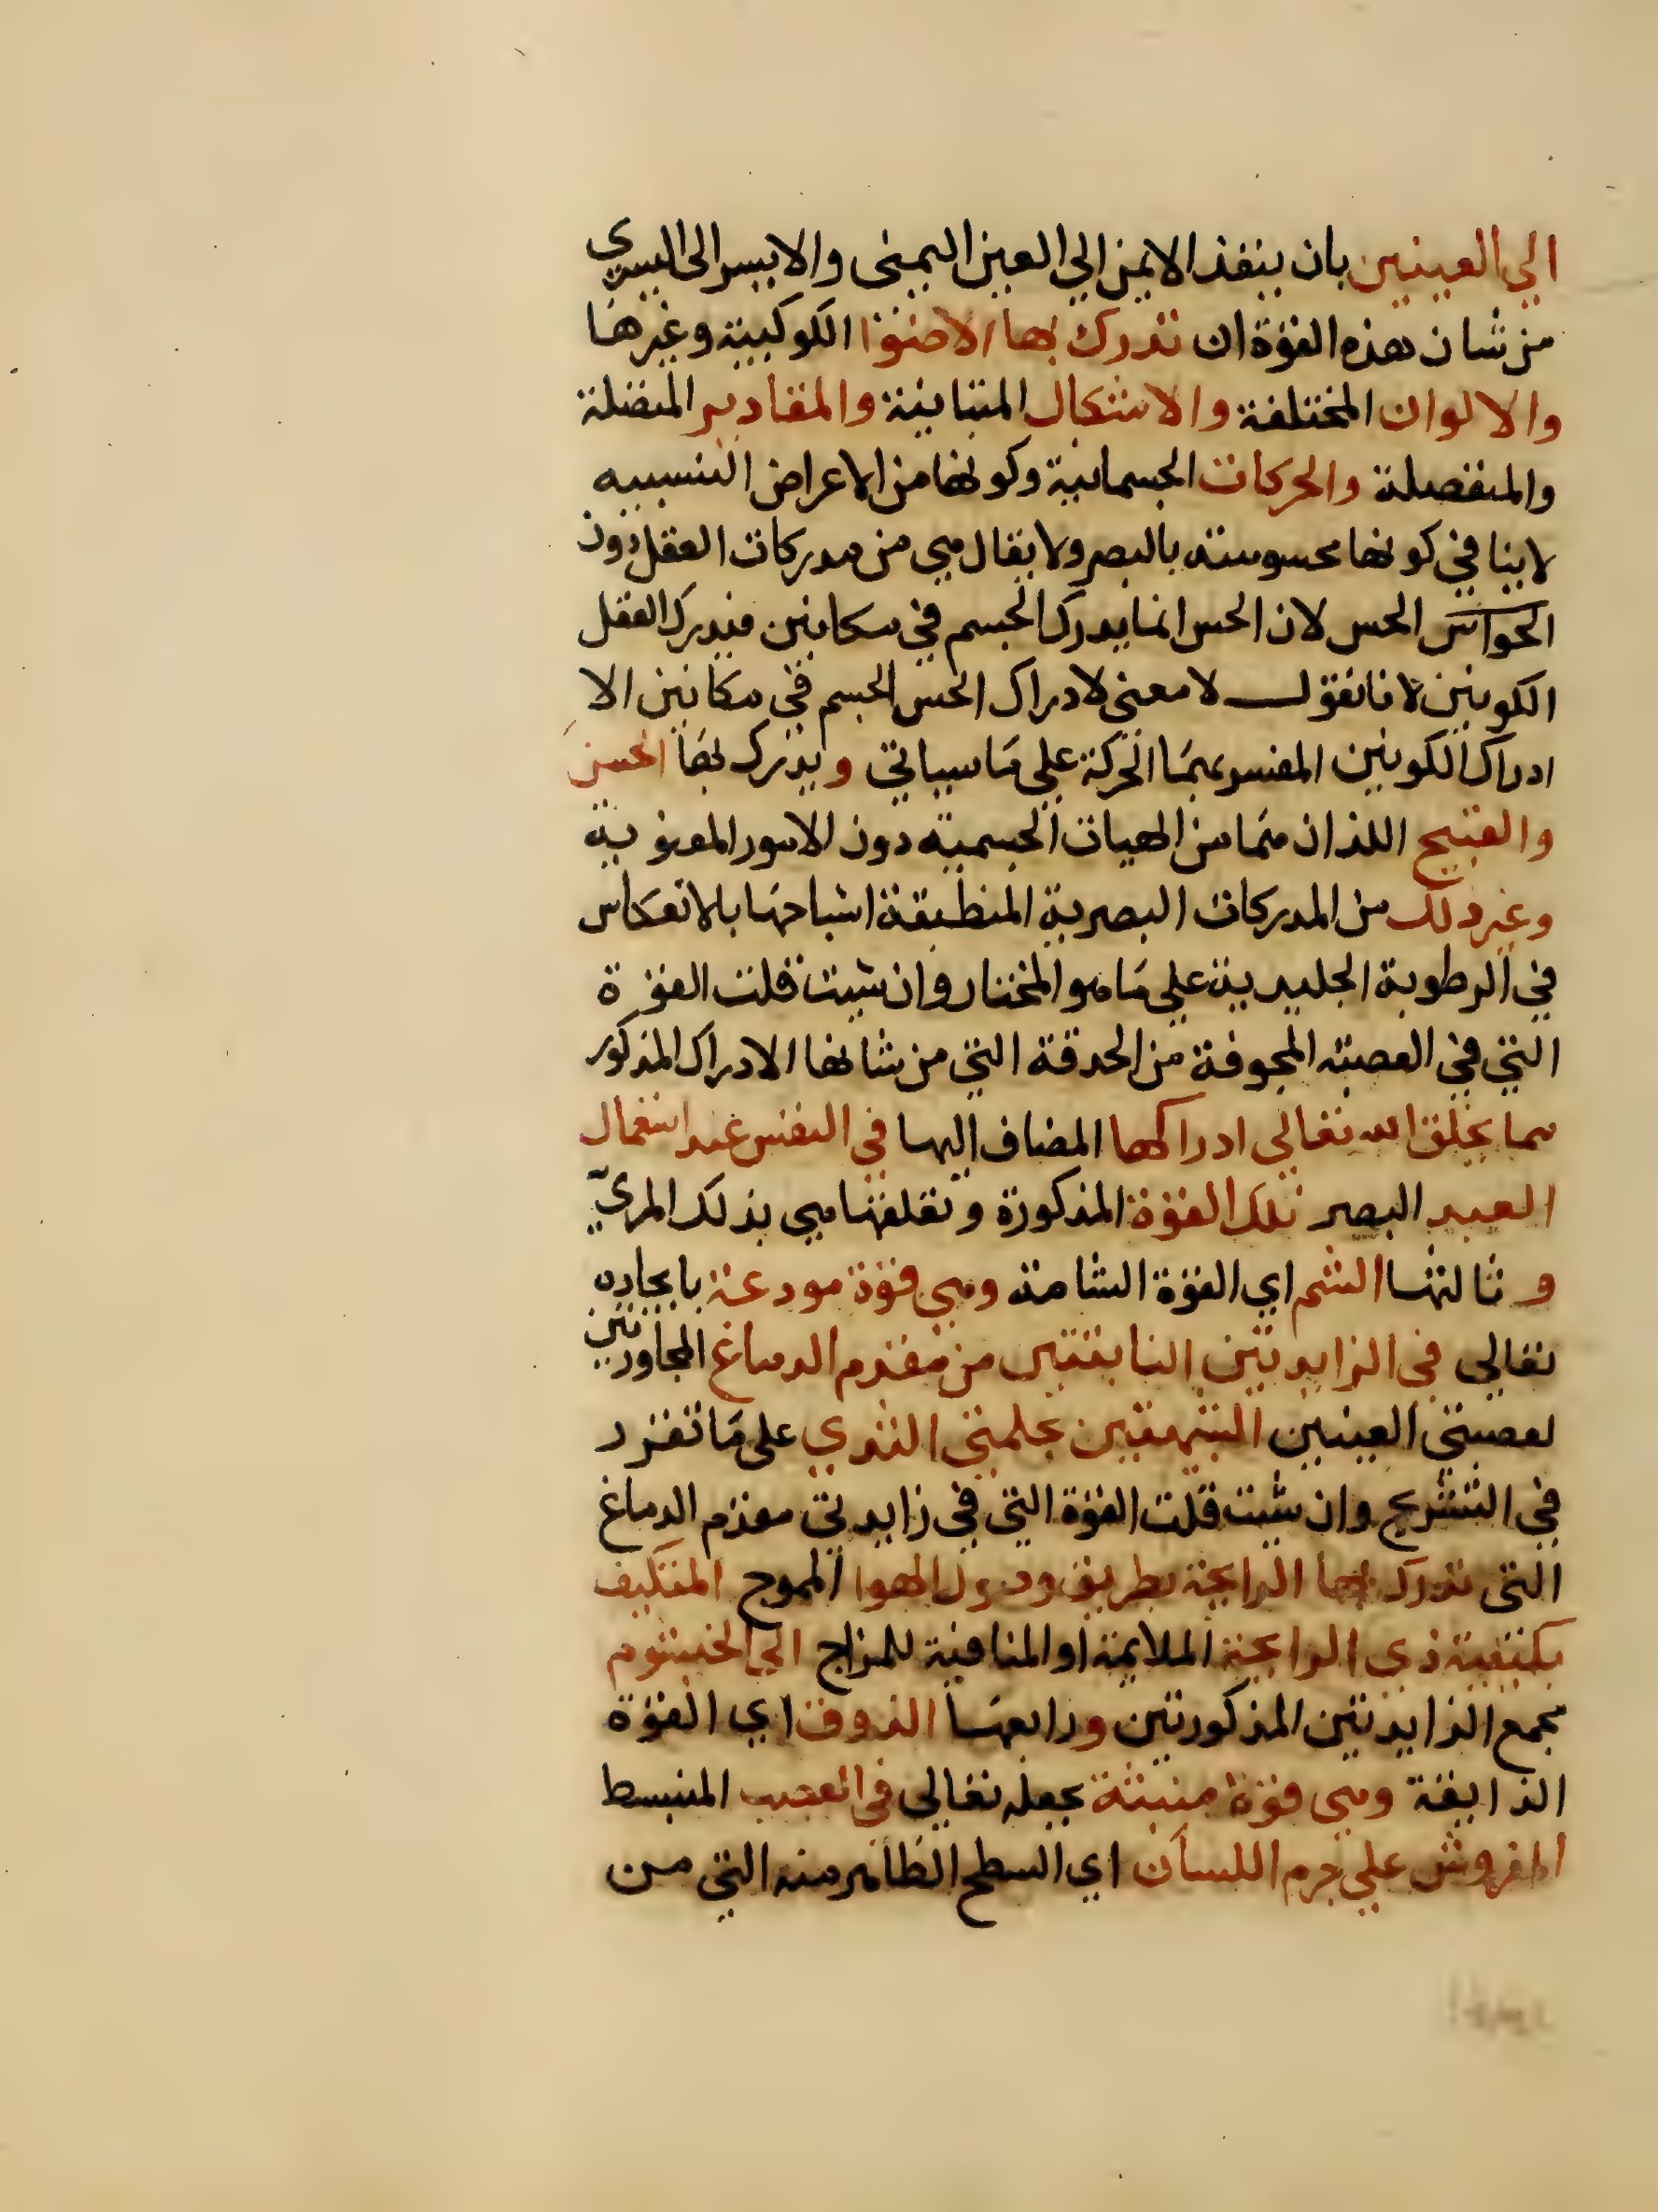 الي العينين بان ينفذ الايمن الي العين اليمنى والايسر الى اليسري
من شان هذه القوة ان تدرك بها الاضوا الكوكبية وغيرها
والالوان المختلفة والاشكال المتباينة والمقادير المتصلة
والمنفصلة والحركات الجسمانية وكونها من الاعراض النسبيه
لاينافي كونها محسوسة بالبصر ولا يقال هي من مدركات العقل دون
الحواس الحس لان الحس انما يدرك الجسم في مكانين فيدرك العقل
الكونين لانا نقول لا معنى لادراك الحس الجسم في مكانين الا
ادراك الكونين المفسر بهما الحركة علي ما سياتي ويدرك بها الحسن
والقبيح اللذان هما من الهيات الجسمية دون الامور المعنوية
وغير ذلك من المدركات البصرية المنطبقة اشباحها بالانعكاس
في الرطوبة الجليدية علي ما هو المختار وان شيت قلت القوة
التي في العصبة المجوفة من الحدقة التي من شانها الادراك المذكور
مما يخلق الله تعالى ادراكها المضاف اليها في النفس عند استعمال
العبد البصر تلك القوة المذكورة وتعلقها هي بذلك المريّ
و ثالثها الشم اي القوة الشامة وهي قوة مودعة بايجاده
تعالي في الزايدتين النابتتين من مقدم الدماغ المجاورتين
لعصبتي العينين الشبيهتين بحلمتي الثدي على ما تقرر
في التشريح وان شيت قلت القوة التي في زايدتي مقدم الدماغ
التي تدرك بها الرايحة بطريق وصول الهوا المموج المتكيف
بكيفية ذي الرايحة الملايمة او المنافية للمزاج الي الخيشوم
مجمع الزايدتين المذكورتين ورابعها الذوق اي القوة
الذايقة وهي قوة منبثة بجعله تعالي في العصب المنبسط
المفروش علي جرم اللسان اي السطح الظاهر منه التي من